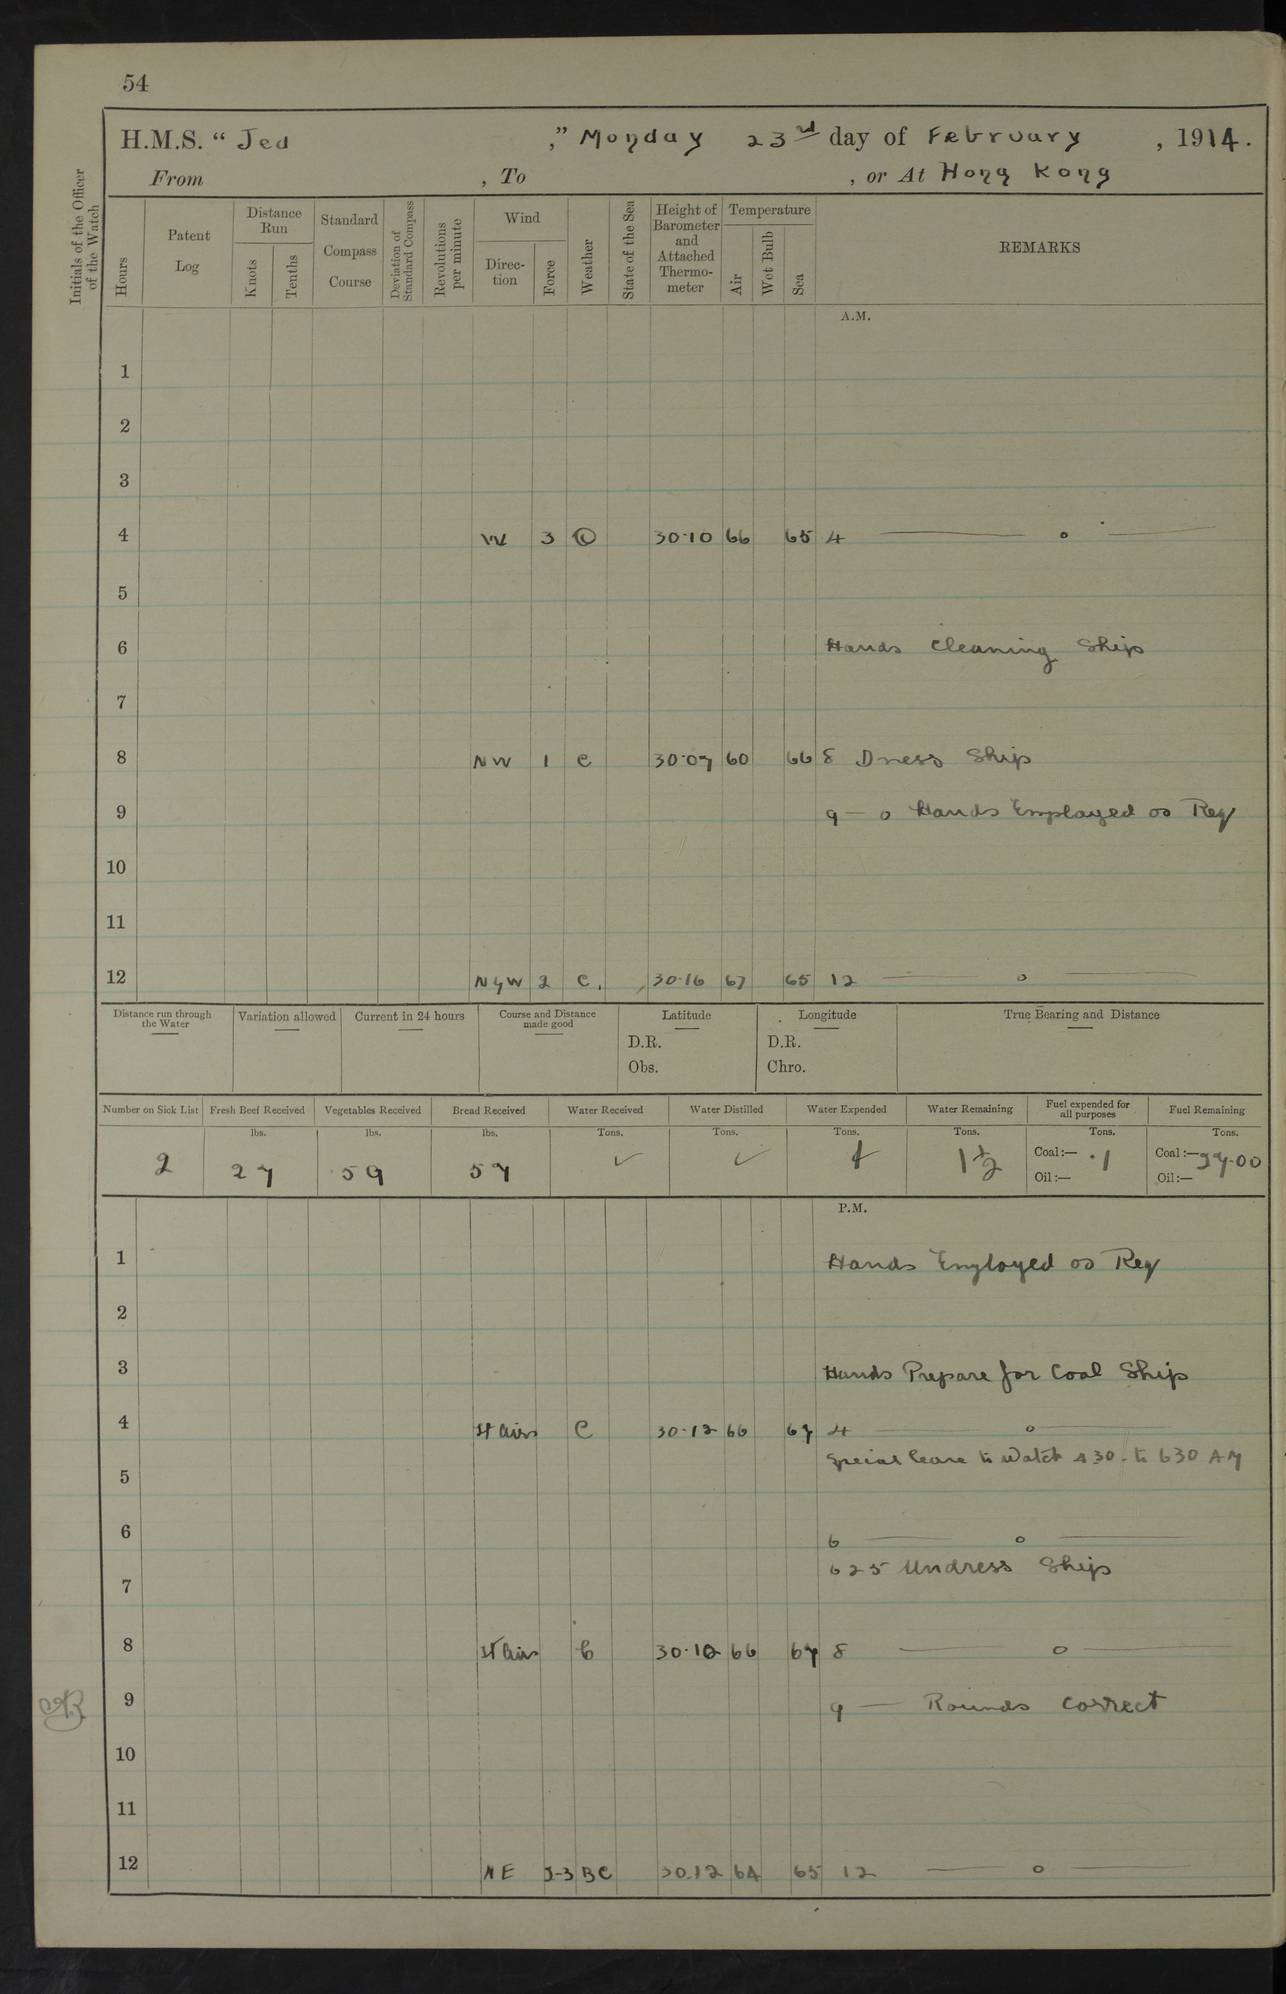 54
H.M.S. “ Jed ,” Monday 23rd day of February , 1914.
From , To , or At Hong Kong
Initials of the Officer of the Watch
Hours
Patent Log
Distance Run
Knots
Tenths
Standard Compass Course
Deviation of Standard Compass
Revolutions per minute
Wind
Direction
Force
Weather
State of the Sea
Height of Barometer and Attached Thermo-meter
Temperature
Air
Wet Bulb
Sea
REMARKS
A.M.
1
2
3
4 W 3 C 30·10 66 65 4 — o —
5
6 Hands Cleaning Ship
7
8 NW 1 C 30·07 60 66 8 Dress Ship
9 9 — o Hands Employed as Req
10
11
12 NyW 2 C. 30·16 67 65 12 — o —
Distance run through the Water
Variation allowed
Current in 24 hours
Course and Distance made good
Latitude
D.R.
Obs.
Longitude
D.R.
Chro.
True Bearing and Distance
Number on Sick List Fresh Beef Received Vegetables Received Bread Received Water Received Water Distilled Water Expended Water Remaining Fuel expended for all purposes Fuel Remaining
lbs. lbs. lbs. Tons. Tons. Tons. Tons. Tons. Tons.
2 27 59 57 ✓ ✓ 1½ Coal:— ·1 Coal:— 27·00
Oil:— Oil:—
P.M.
1 Hands Employed as Req
2
3 Hands Prepare for Coal Ship
4 Lt airs C 30·12 66 67 4 — o —
Special leave to Watch 430 - to 630 AM
5
6 6 — o —
625 Undress Ship
7
8 Lt airs C 30·10 66 67 8 — o —
9 9 — Rounds Correct
10
11
12 NE 2-3 BC 30.12 64 65 12 — o —